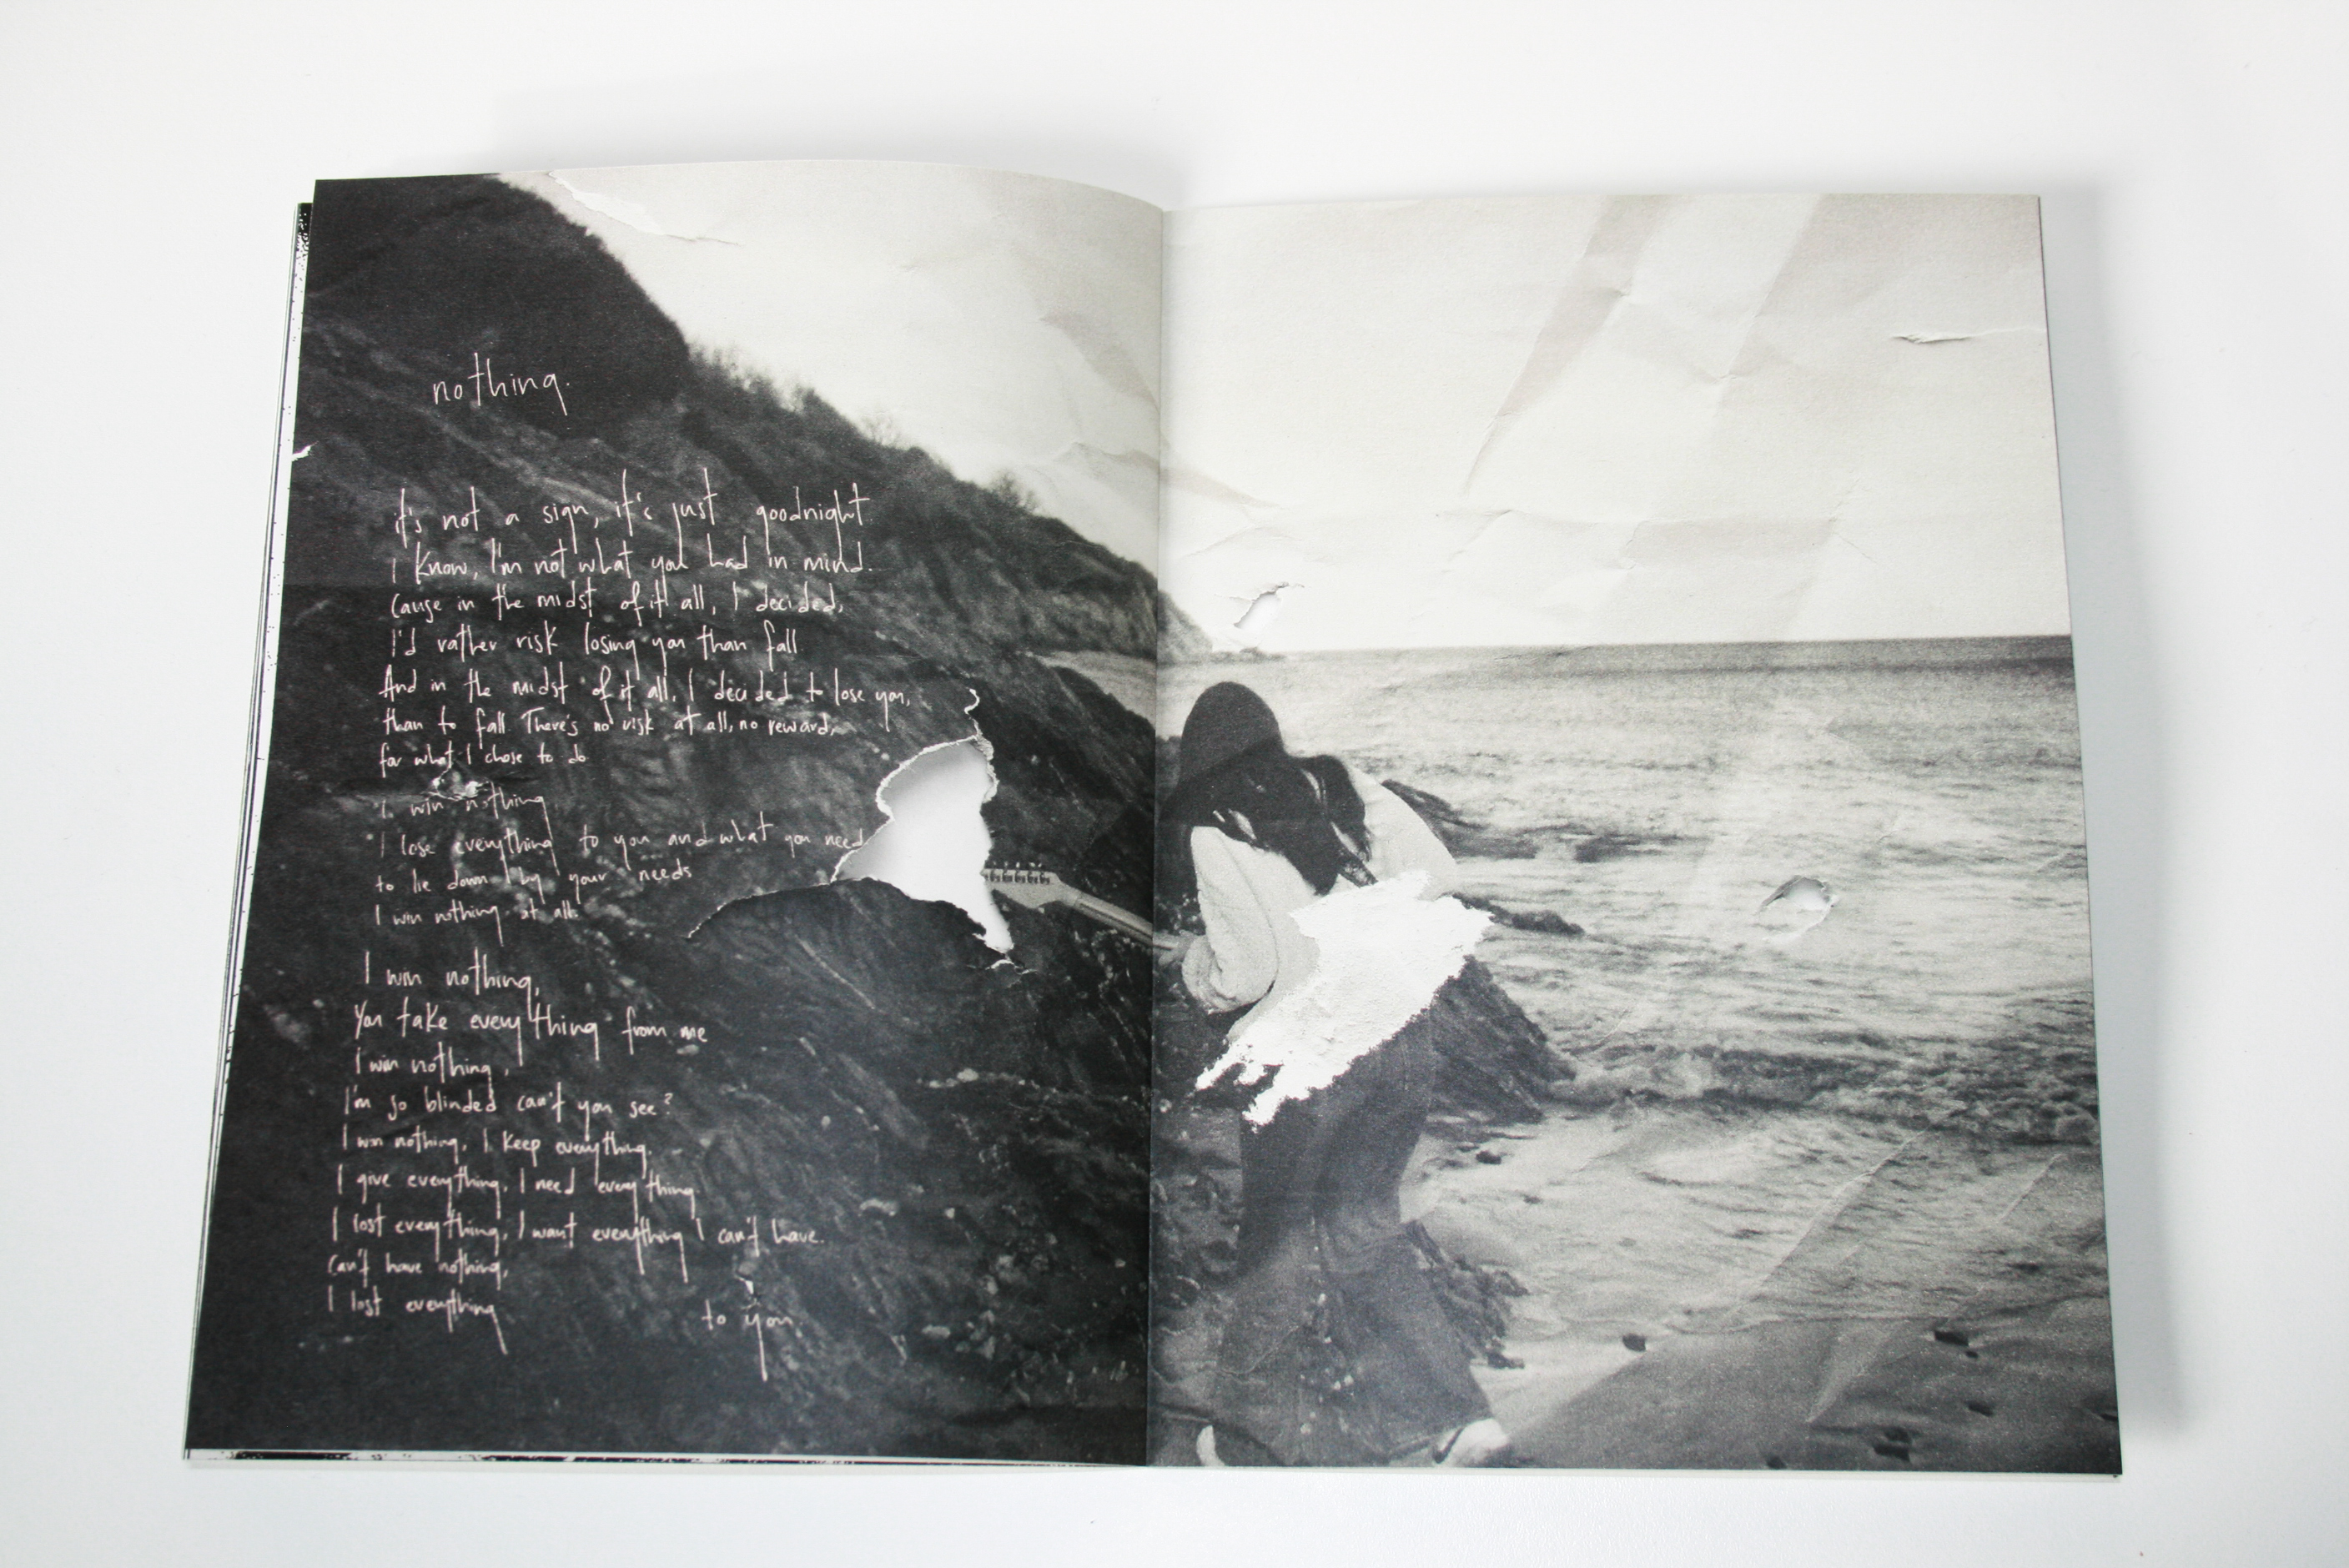 nothing.
it's not a sign, it's just goodnight
I know, I'm not what you had in mind.
Cause in the midst of it all, I decided,
I'd rather risk losing you than fall
And in the midst of it all, I decided to lose you,
than to fall There's no risk at all, no reward,
for what I chose to do
I win nothing
I lose everything to you and what you need
to lie down by your needs
I win nothing at all.
I win nothing,
You take everything from me
I win nothing,
I'm so blinded can't you see?
I win nothing, I keep everything.
I give everything, I need everything.
I lost everything, I want everything I can't have.
Can't have nothing,
I lost everything to you.